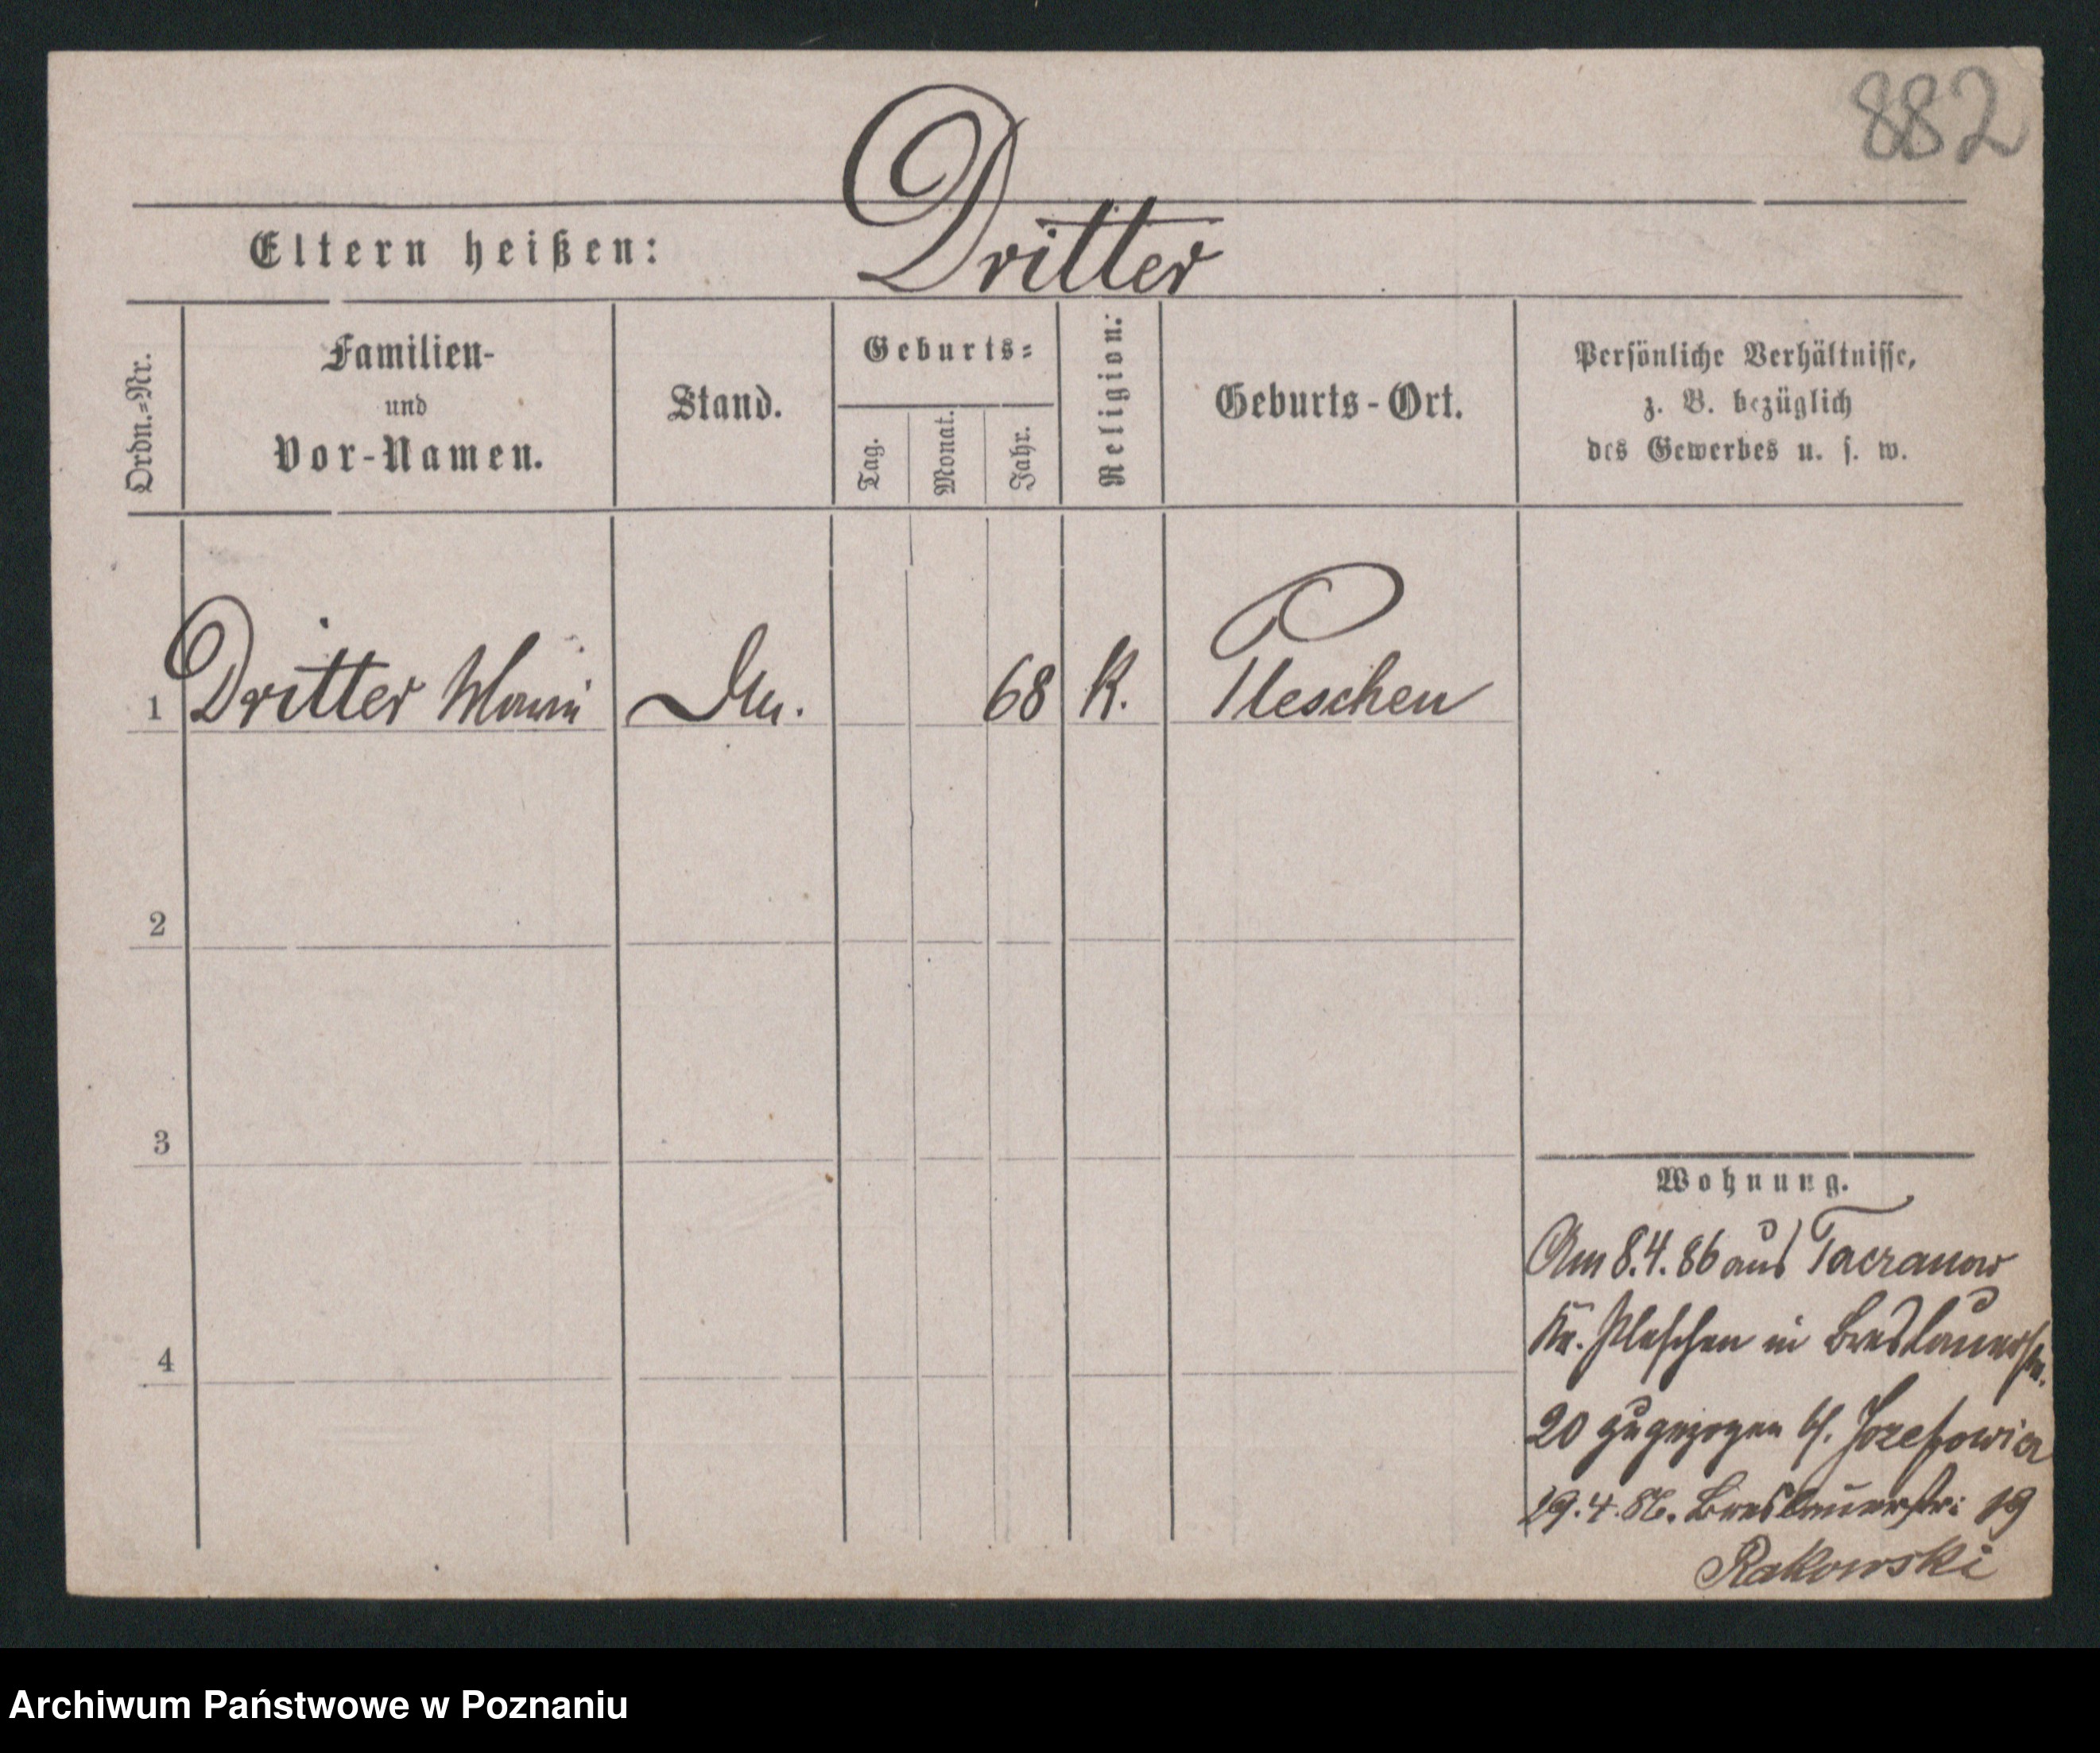 882
Dritter
Eltern heißen:
Ordn.=Nr.
Familien-
und
Vor-Namen.
Stand.
Geburts=
Tag.
Monat.
Jahr.
Religion:
Geburts-Ort.
Persönliche Verhältnisse,
z. B. bezüglich
des Gewerbes u. s. w.
1 Dritter 68 K. Pleschen
2
3
4
Wohnung.
Am 8.4.86 aus
Kr. Pleschen in Breslauerstr.
20 zugezogen
29.4.86. Breslauerstr: 19
Rakowski
Archiwum Państwowe w Poznaniu